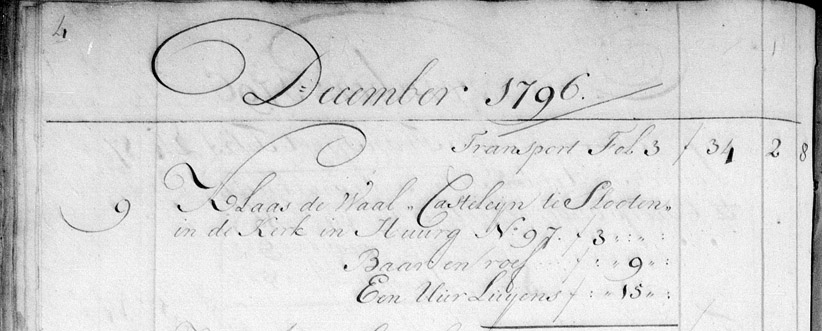 4
December 1796.
Transport Fol 3 f 34 2 8
9 Klaas de Waal „ Casteleyn te Slooten „
in de Kerk in Huurg No 97. f 3 „: „:
Baar en roef f: „ 9 „:
Een Uur Luyens f: „ 15 „: